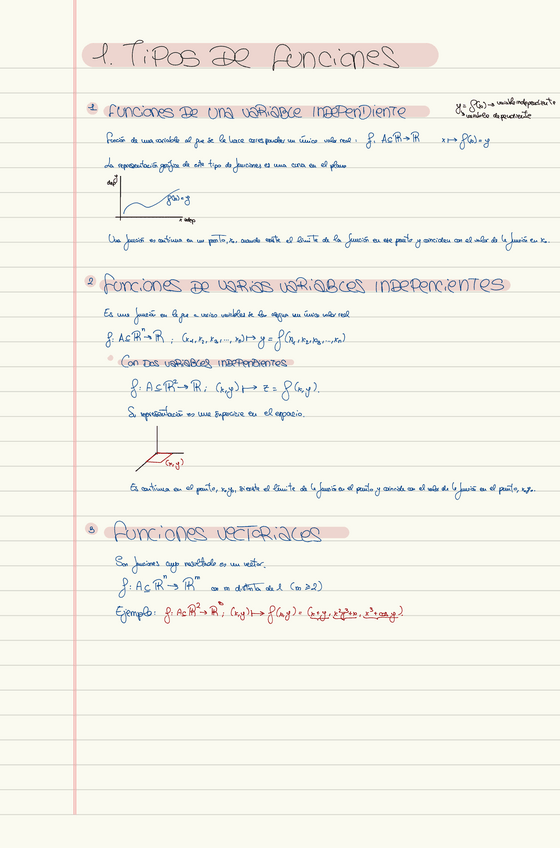 1. Tipos de Funciones
1 Funciones de una variable independiente
y = f(x) → variable independiente
↳ variable dependiente
Función de una variable al que se le hace corresponder un único valor real : f: A⊆ℝ→ℝ x ↦ f(x) = y
La representación gráfica de este tipo de funciones es una curva en el plano.
y
dep
f(x) = y
x indep
Una función es continua en un punto, x₀, cuando existe el límite de la función en ese punto y coinciden con el valor de la función en x₀.
2 Funciones de varias variables independientes
Es una función en la que a varias variables se les asigna un único valor real
f: A⊆ℝⁿ→ℝ ; (x₁, x₂, x₃, ..., xₙ) ↦ y = f(x₁, x₂, x₃, ..., xₙ)
Con dos variables independientes
f: A⊆ℝ²→ℝ ; (x,y) ↦ z = f(x,y).
Su representación es una superficie en el espacio.
(x,y)
Es continua en el punto, x₀y₀, si existe el límite de la función en el punto y coincide con el valor de la función en el punto, x₀y₀.
3 Funciones vectoriales
Son funciones cuyo resultado es un vector.
f: A⊆ℝⁿ→ℝᵐ con m distinta de 1 (m ≥ 2)
Ejemplo: f: A⊆ℝ²→ℝ³ ; (x,y) ↦ f(x,y) = (x+y, x²y³+x, x³+cos y)